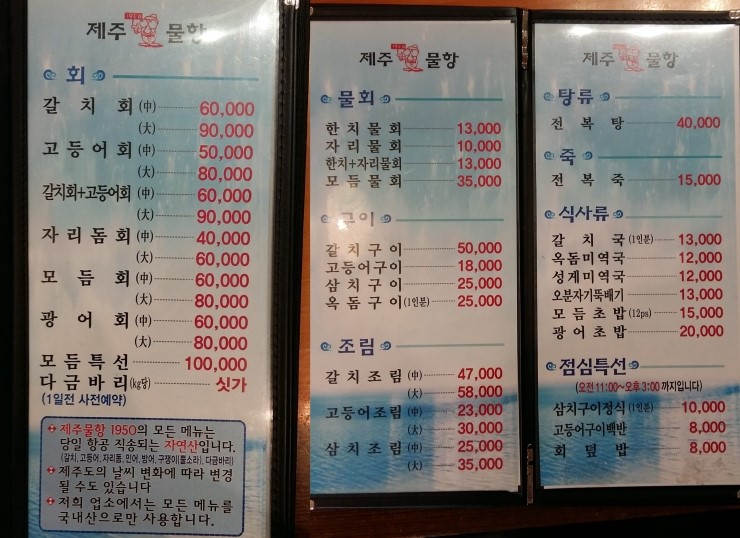 제주 물항
회
갈치회 (中) 60,000
(大) 90,000
고등어회 (中) 50,000
(大) 80,000
갈치회+고등어회 (中) 60,000
(大) 90,000
자리돔회 (中) 40,000
(大) 60,000
모듬회 (中) 60,000
(大) 80,000
광어회 (中) 60,000
(大) 80,000
모듬특선 100,000
다금바리 (kg당) 싯가
(1일전 사전예약)
제주물항 1950의 모든 메뉴는
당일 항공 직송되는 자연산입니다.
(갈치, 고등어, 자리돔, 민어, 방어, 구쟁이(홀소라), 다금바리)
제주도의 날씨 변화에 따라 변경
될 수도 있습니다
저희 업소에서는 모든 메뉴를
국내산으로만 사용합니다.
제주 물항
물회
한치물회 13,000
자리물회 10,000
한치+자리물회 13,000
모듬물회 35,000
구이
갈치구이 50,000
고등어구이 18,000
삼치구이 25,000
옥돔구이 (1인분) 25,000
조림
갈치조림 (中) 47,000
(大) 58,000
고등어조림 (中) 23,000
(大) 30,000
삼치조림 (中) 25,000
(大) 35,000
제주 물항
탕류
전복탕 40,000
죽
전복죽 15,000
식사류
갈치국 (1인분) 13,000
옥돔미역국 12,000
성게미역국 12,000
오분자기뚝배기 13,000
모듬초밥 (12ps) 15,000
광어초밥 20,000
점심특선
(오전 11:00~오후 3:00 까지입니다)
삼치구이정식 (1인분) 10,000
고등어구이백반 8,000
회덮밥 8,000